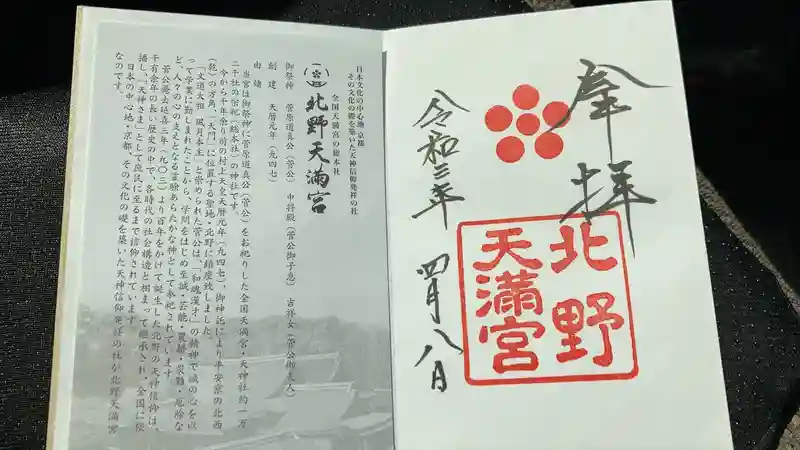 奉拝
北野
天満宮
令和三年 四月八日
日本文化の中心地 京都
その文化の礎を築いた天神信仰発祥の社
全国天満宮の総本社
北野天満宮
御祭神 菅原道真公(菅公) 中将殿(菅公御子息) 吉祥女(菅公御夫人)
創建 天暦元年(九四七)
由緒
当宮は御祭神に菅原道真公(菅公)をお祀りした全国天満宮・天神社約一万
二千社の宗祀(総本社)の神社です。
今から千年余り前の村上天皇天暦元年(九四七)、御神託により平安京の北西
(乾)の方角、「天門」に位置する聖地・北野に鎮座致しました。
「文道大祖 風月本主」と崇められた菅公は、「和魂漢才」の精神で誠の心を以
って学業に勤しまれたことから、学問をはじめ至誠・芸能・農耕・災難・厄除な
ど、人々の心の支えとなる霊験あらたかな神として奉祀されてします。
菅公薨去延喜三年(九〇三)より百年をかけて誕生した北野の天神信仰は、
千有余年の長い歴史の中で、各時代の社会構造と相まって継承され、全国に伝
播し、「天神さま」として庶民に至るまで信仰されています。
日本の中心地・京都、その文化の礎を築いた天神信仰発祥の社が北野天満宮
なのです。